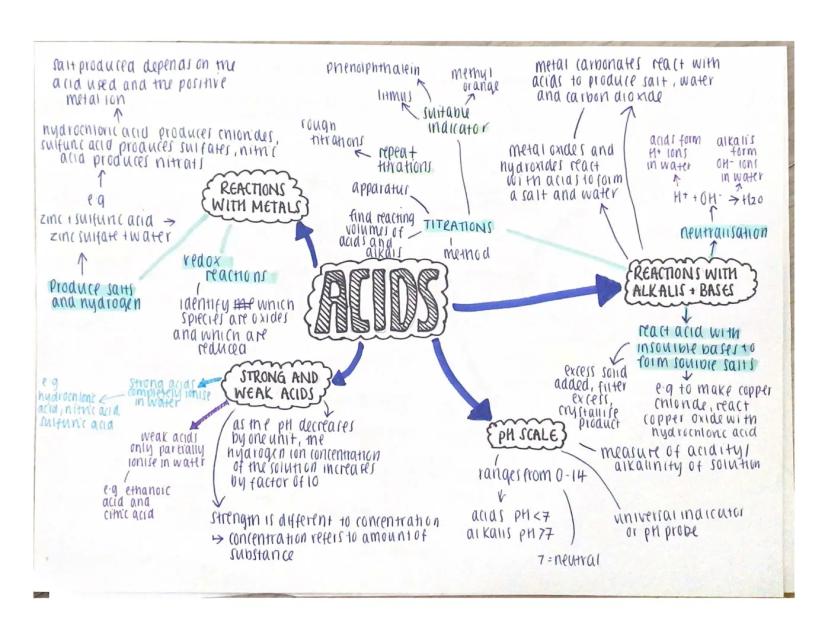 ACIDS
REACTIONS
WITH METALS
Produce salts
and hydrogen
zinc + sulfuric acid →
zinc sulfate + water
e g
hydrochloric acid produces chlorides,
sulfuric acid produces sulfates, nitric
acid produces nitrats
salt produced depends on the
acid used and the positive
metal ion
redox
reactions
identify which
species are oxides
and which are
reduced
TITRATIONS
method
find reacting
volumes of
acids and
alkalis
apparatus
repeat
titrations
rough
titrations
suitable
indicator
litmus
phenolphthalein
methyl
orange
REACTIONS WITH
ALKALIS + BASES
metal oxides and
hydroxides react
with acids to form
a salt and water
metal carbonates react with
acids to produce salt, water
and carbon dioxide
neutralisation
H+ + OH- → H2O
acids form
H+ ions
in water
alkalis
form
OH- ions
in water
react acid with
insoluble bases to
form soluble salts
excess solid
added, filter
excess,
crystallise
product
e.g to make copper
chloride, react
copper oxide with
hydrochloric acid
pH SCALE
measure of acidity/
alkalinity of solution
universal indicator
or pH probe
ranges from 0-14
acids pH <7
alkalis pH >7
7 = neutral
STRONG AND
WEAK ACIDS
strong acids
completely ionise
in water
e g
hydrochloric
acid, nitric acid
sulfuric acid
weak acids
only partially
ionise in water
e.g ethanoic
acid and
citric acid
as the pH decreases
by one unit, the
hydrogen ion concentration
of the solution increases
by factor of 10
strength is different to concentration
↳ concentration refers to amount of
substance